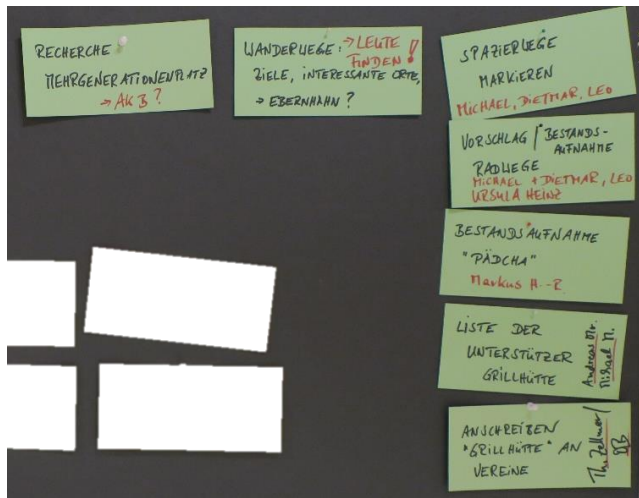 RECHERCHE
MEHRGENERATIONENPLATZ
→ AK B?
WANDERWEGE: → LEUTE
FINDEN!
ZIELE, INTERESSANTE ORTE,
→ EBERNHAHN?
SPAZIERWEGE
MARKIEREN
MICHAEL, DIETMAR, LEO
VORSCHLAG / BESTANDS-
AUFNAHME
RADWEGE
MICHAEL + DIETMAR, LEO
URSULA HEINZ
BESTANDSAUFNAHME
"PÄDCHA"
Markus H.-R.
LISTE DER
UNTERSTÜTZER
GRILLHÜTTE
Andreas
Michael M.
ANSCHREIBEN
"GRILLHÜTTE" AN
VEREINE